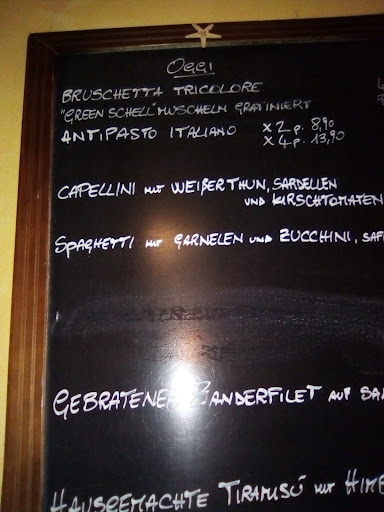 OGGI
BRUSCHETTA TRICOLORE
"GREEN SCHELL" MUSCHELN GRATINIERT
ANTIPASTO ITALIANO x 2 p. 8,90
x 4 p. 13,90
CAPELLINI MIT WEIßER THUN, SARDELLEN
UND KIRSCHTOMATEN
SPAGHETTI MIT GARNELEN UND ZUCCHINI, SAF
GEBRATENER ZANDERFILET AUF SA
HAUSGEMACHTE TIRAMISÚ MIT HIMB